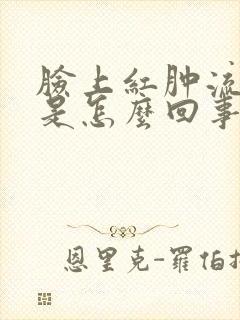 臉上紅肿流
是怎麼回事
恩里克-羅伯抟